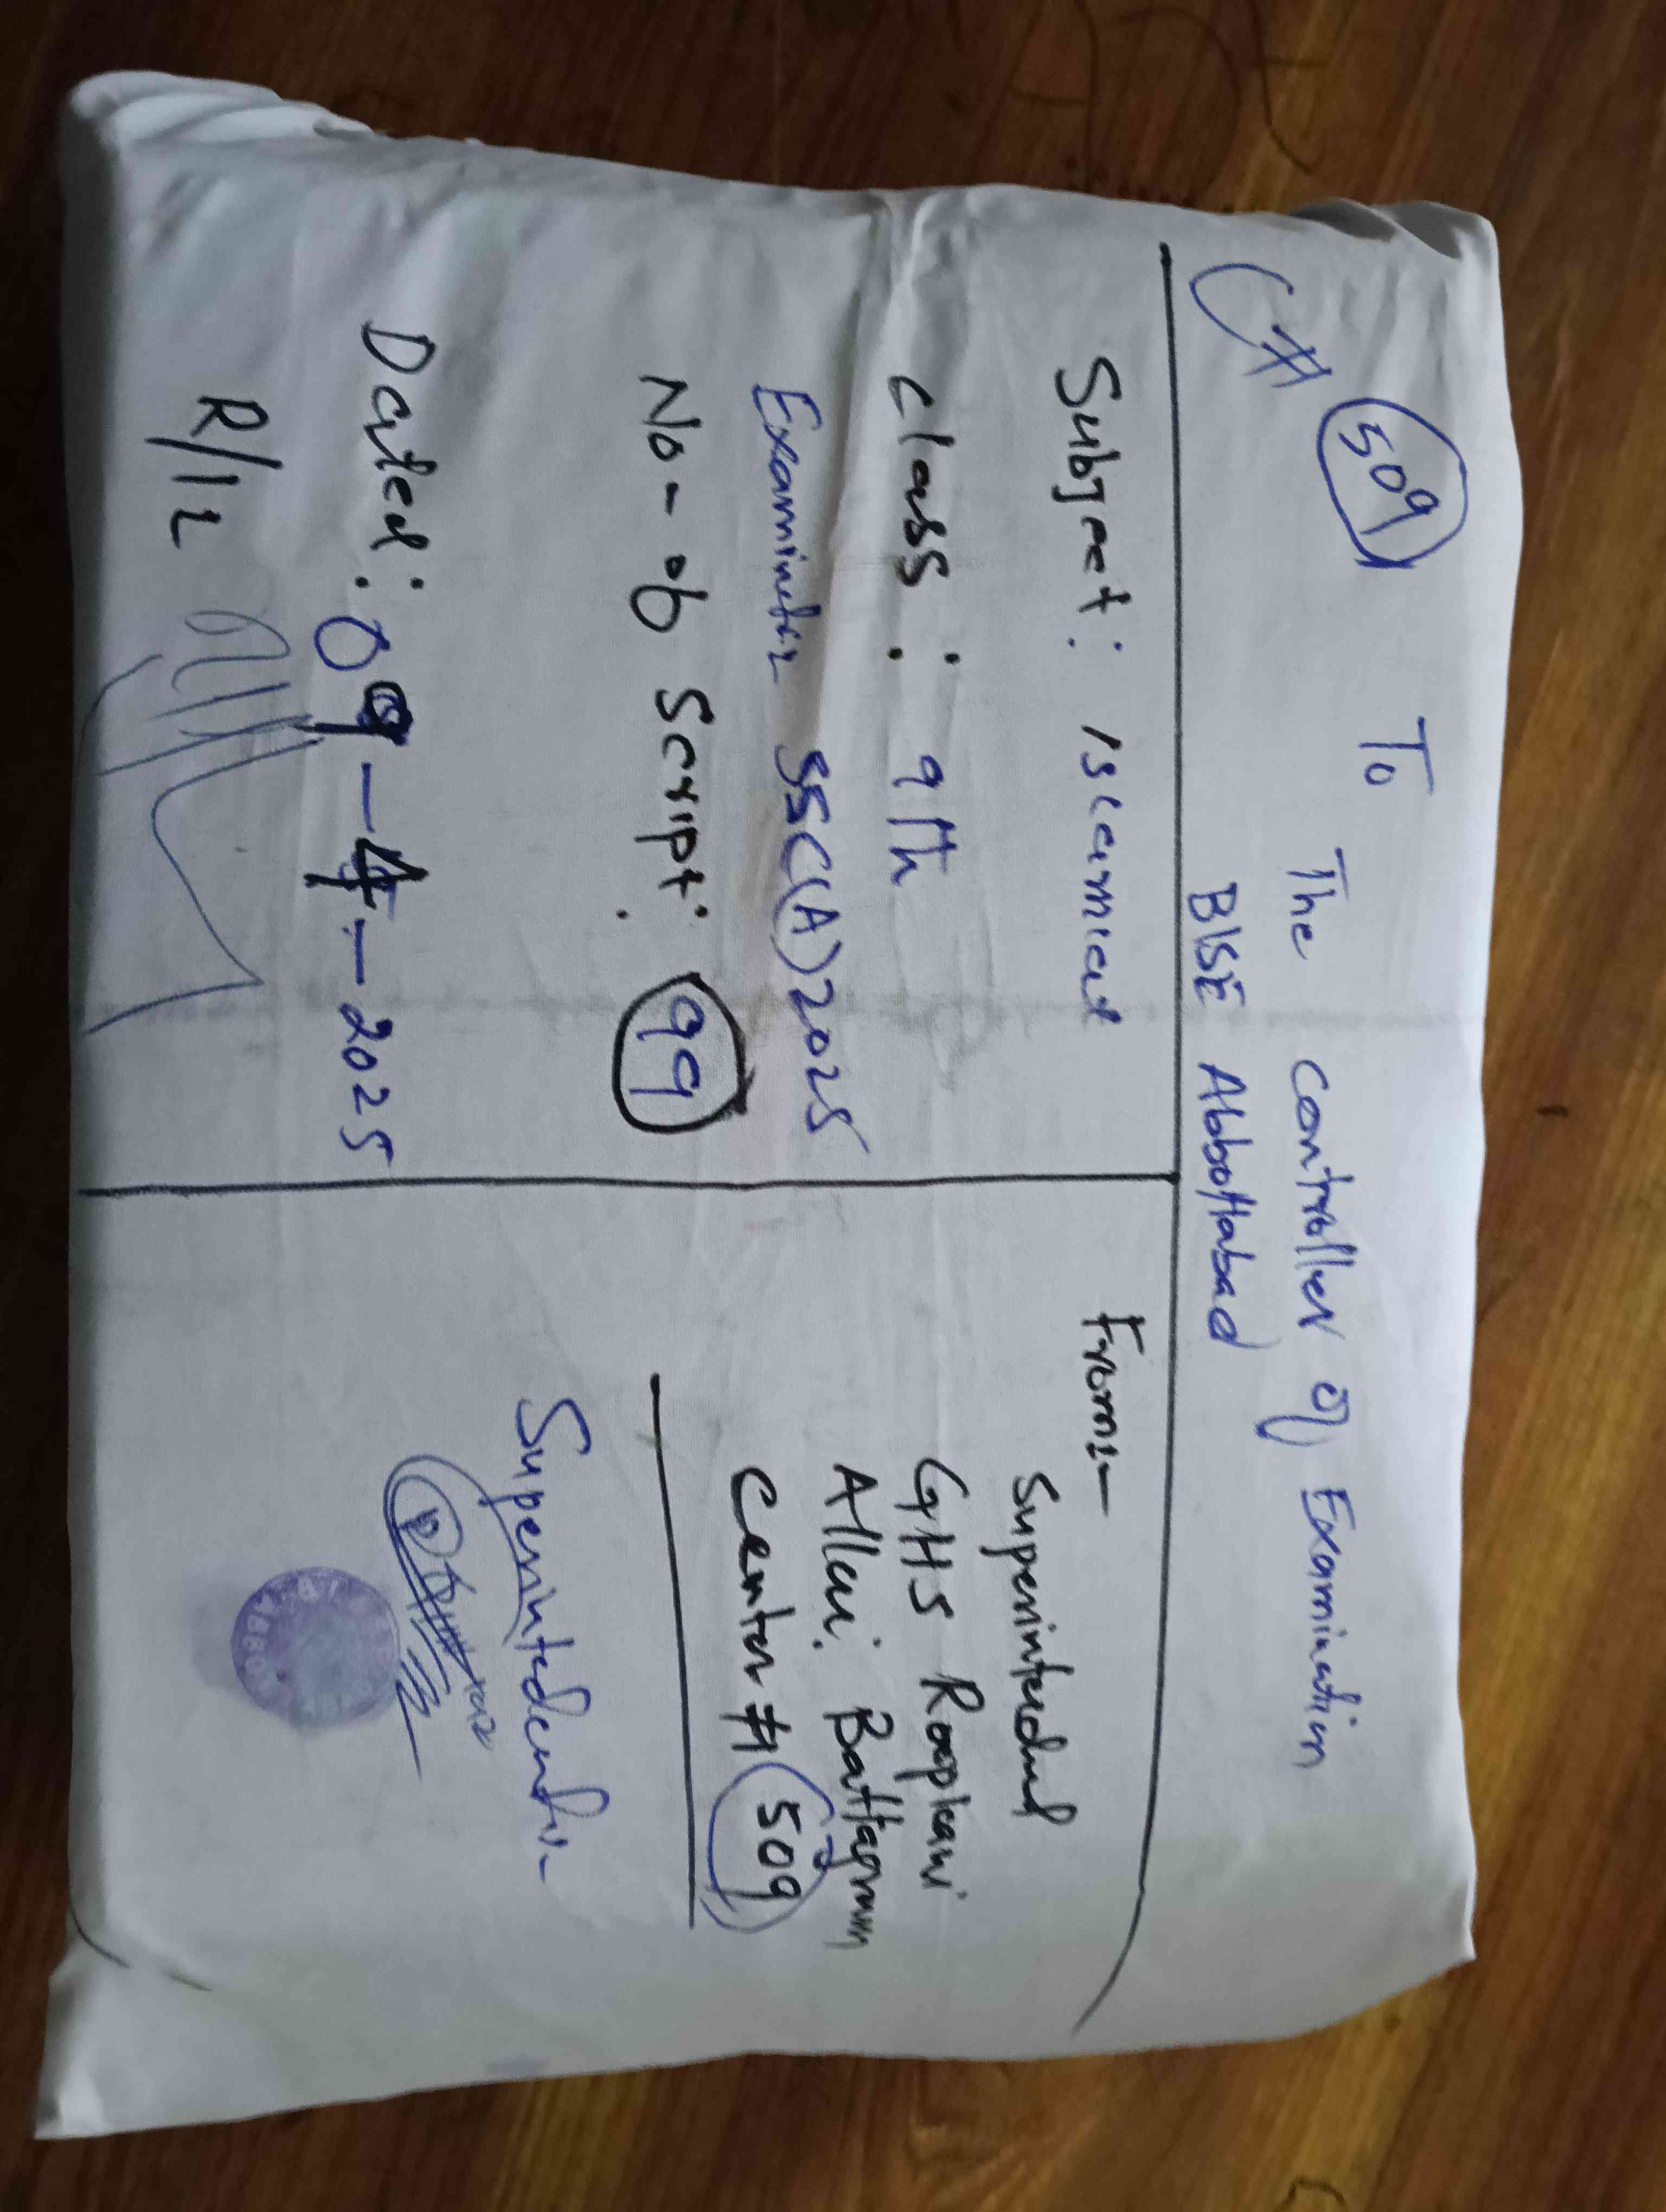 C# 509
To
The Controller of Examination
BISE Abbottabad
Subject: Islamiat
Class: 9th
Examination SSC(A) 2025
No- of Script: 99
Dated: 09-4-2025
R/12
From:-
Superintendent
GHS Rooplkani
Allai. Battagram
Center # 509
Superintedent:-